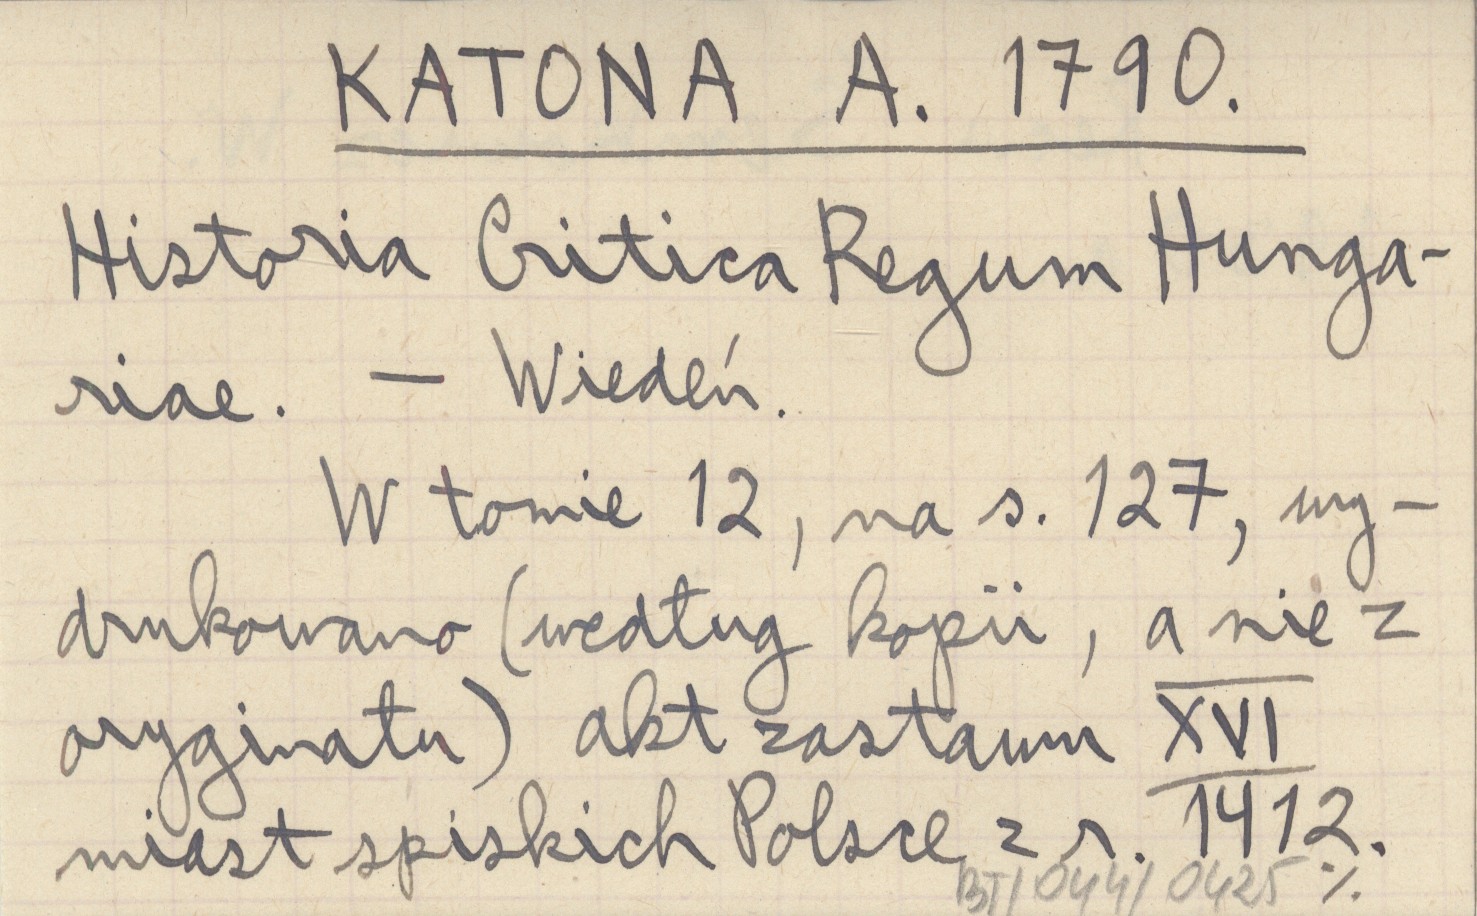 KATONA A. 1790.
Historia Critica Regum Hunga-
riae. — Wiedeń.
W tomie 12, na s. 127, wy-
drukowano (według kopii, a nie z
oryginału) akt zastawu XVI
miast spiskich Polsce z r. 1412.
BT/044/0425 ⁒